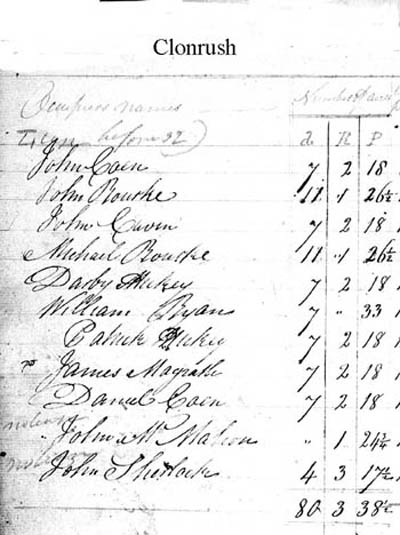 Clonrush
Occupiers names
before 32)
a R P
John Caen 7 2 18
John Rourke 11 " 26½
John Cavin 7 2 18
Michael Rourke 11 " 26½
Darby Hickey 7 2 18
William Ryan 7 " 33
Patrick Hickey 7 2 18
James Magrath 7 2 18
Daniel Caen 7 2 18
John Mc Mahon " 1 24½
John Sherlock 4 3 17½
80 3 38½